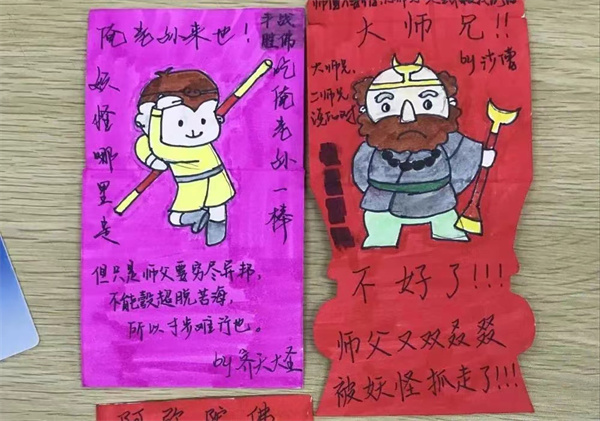 俺老孙来也！
斗战
胜佛
妖怪哪里走
吃俺老孙一棒
但只是师父要穷尽异邦，
不能彀超脱苦海，
所以寸步难行也。
by齐天大圣
大师兄!!
by沙僧
大师兄，
二师兄
说得对
不好了!!!
师父又双叒叕
被妖怪抓走了!!!
阿弥陀佛